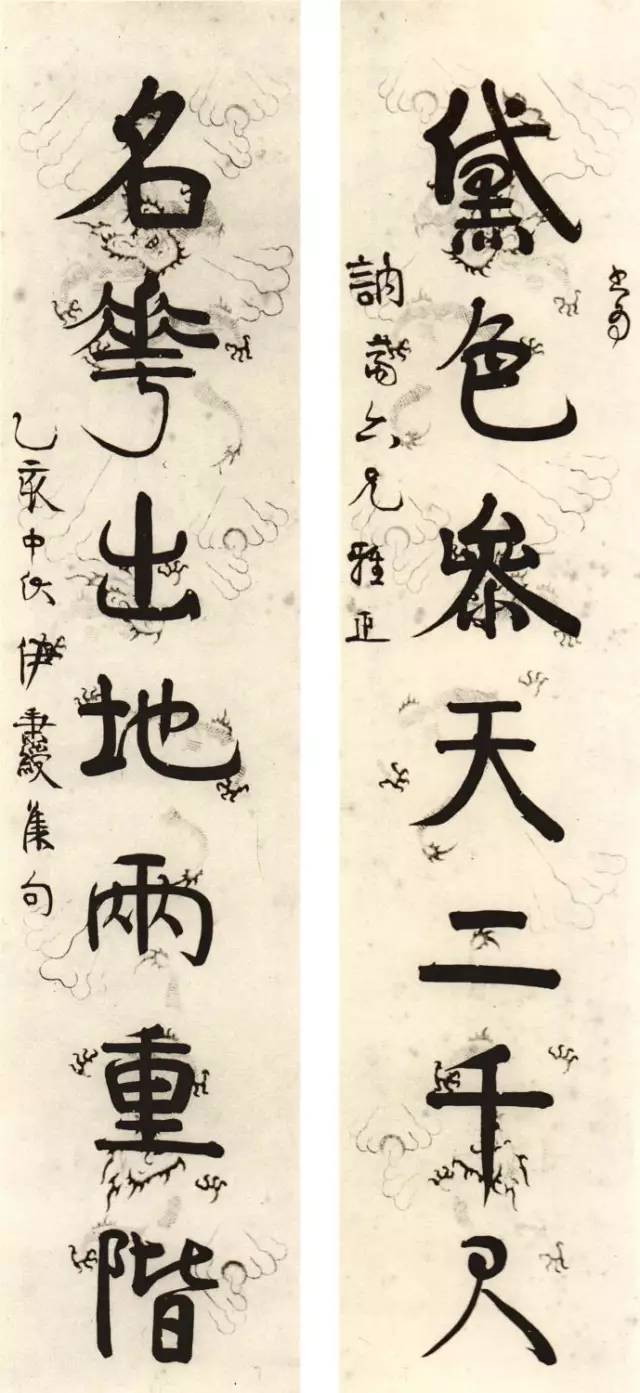 黛色參天二千尺
書爲
訥葊六兄雅正
名華出地兩重階
乙亥中秋伊秉綬集句